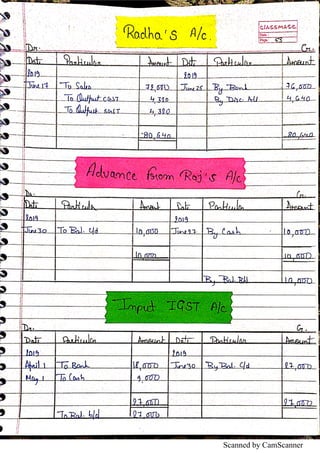 CLASSMATE
Date
Page 53
Radha's A/c
Dr. Cr.
Date Particulars Amount Date Particulars Amount
2019 2019
June 17 To Sales 72,000 June 25 By Bank 76,000
To Output CGST 4,320 By Disc. All 4,640
To Output SGST 4,320
80,640 80,640
Advance from Raj's A/c
Dr. Cr.
Date Particulars Amount Date Particulars Amount
2019 2019
June 30 To Bal. c/d 10,000 June 27 By Cash 10,000
10,000 10,000
By Bal. B/d 10,000
Input IGST A/c
Dr. Cr.
Date Particulars Amount Date Particulars Amount
2019 2019
April 1 To Bank 18,000 June 30 By Bal. C/d 27,000
May 1 To Cash 9,000
27,000 27,000
To Bal. b/d 27,000
Scanned by CamScanner